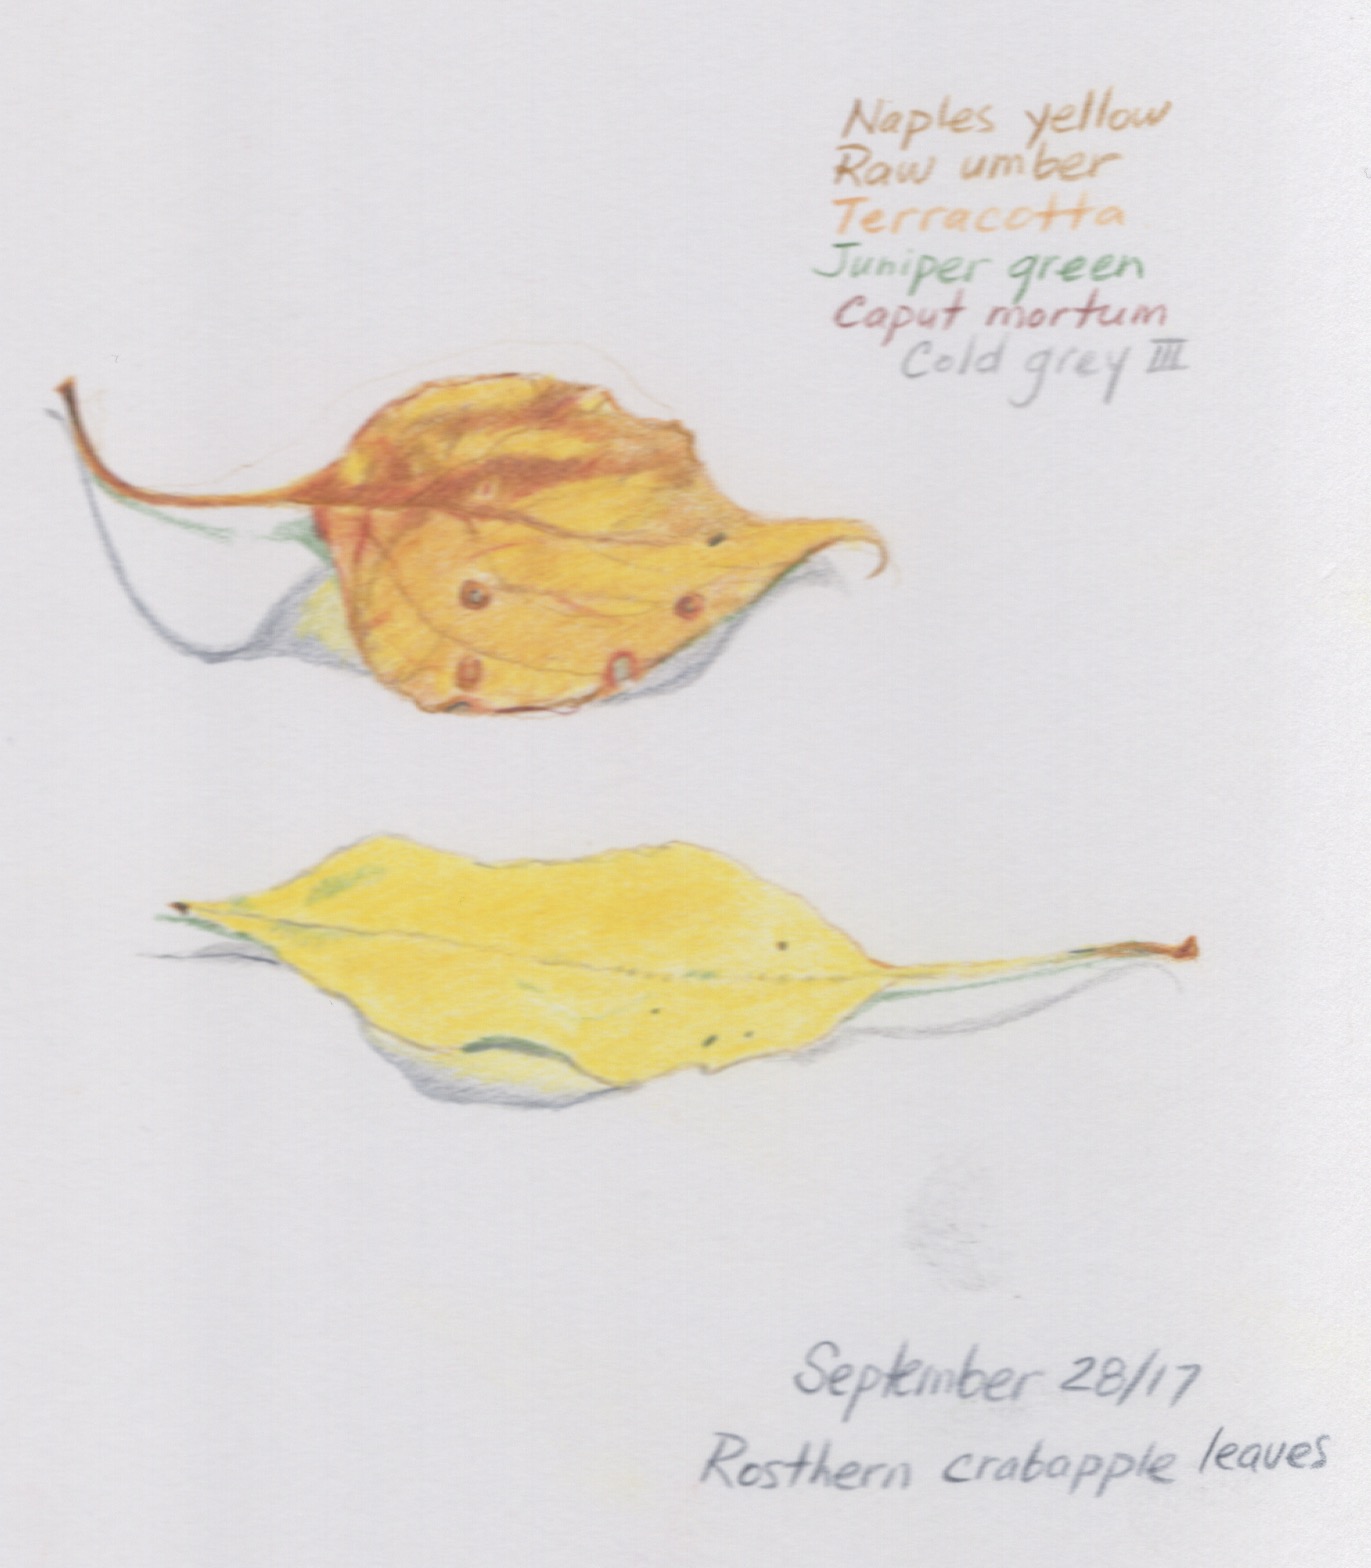 Naples yellow
Raw umber
Terracotta
Juniper green
Caput mortum
Cold grey III
September 28/17
Rosthern crabapple leaves